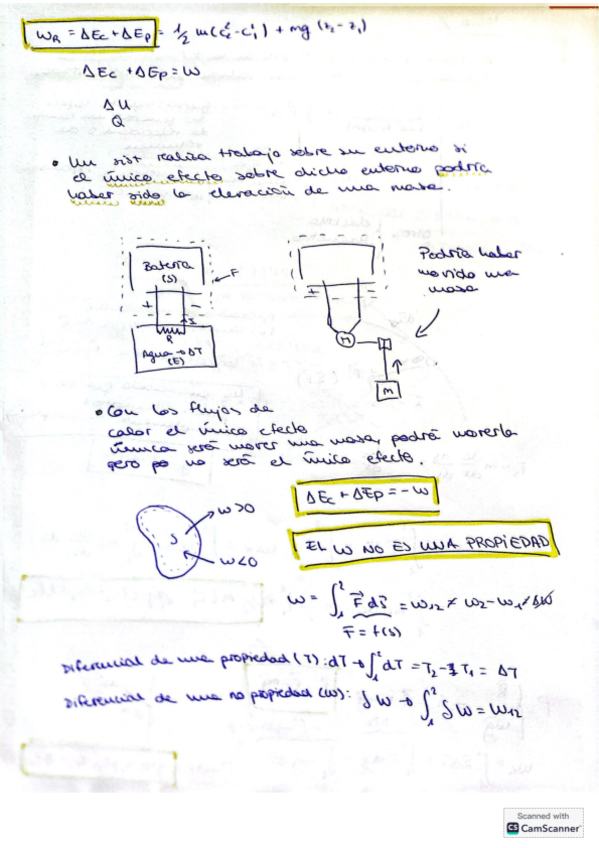 W_R = ΔEc + ΔEp = 1/2 m(c₂² - c₁²) + mg (z₂ - z₁)
ΔEc + ΔEp = W
ΔU
Q
• Un sist realiza trabajo sobre su entorno si
el único efecto sobre dicho entorno podría
haber sido la elevación de una masa.
Batería
(S)
F
+ -
I
R
Agua → ΔT
(E)
+ -
M
M
Podría haber
movido una
masa
• Con los flujos de
calor el único efecto
nunca será mover una masa, podrá moverla
pero no será el único efecto.
ΔEc + ΔEp = - W
EL W NO ES UNA PROPIEDAD
S
W>0
W<0
W = ∫₁² F⃗ ds⃗ = W₁₂ ≠ W₂ - W₁ ≠ ΔW
F⃗ = f(s)
Diferencial de una propiedad (T): dT → ∫₁² dT = T₂ - T₁ = ΔT
Diferencial de una no propiedad (W): ∫W → ∫₁² ∫W = W₁₂
Scanned with
CS CamScanner